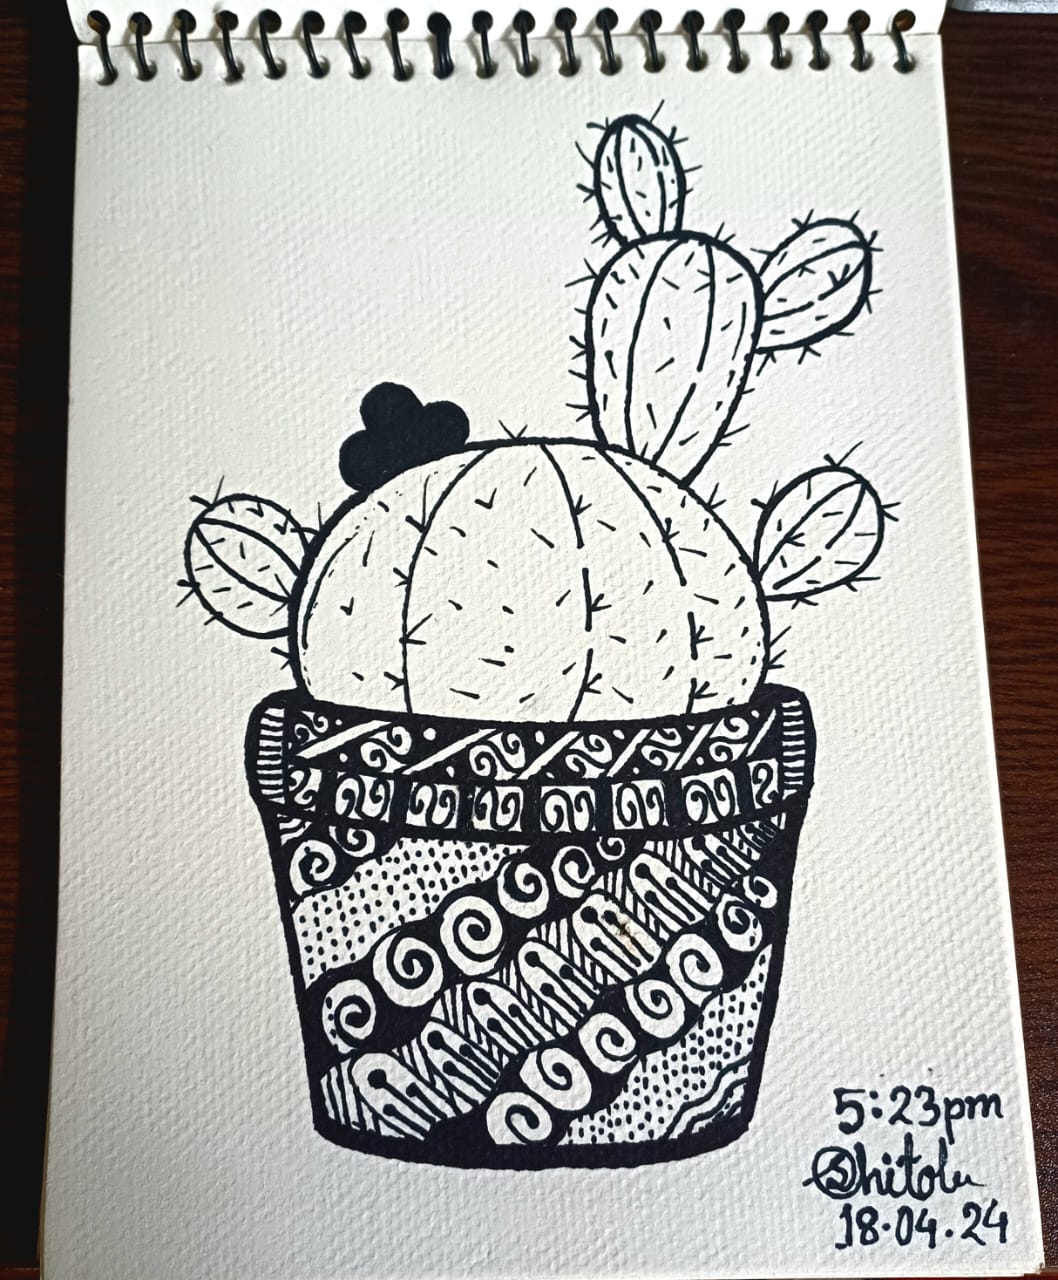 5:23pm
@Shitolu
18.04.24